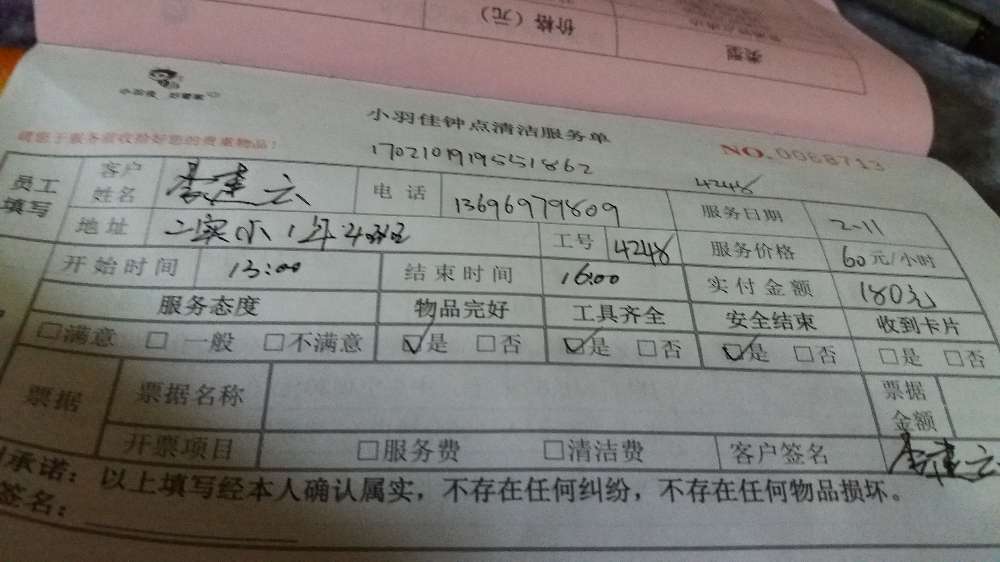 价格（元）
类型
小羽佳 好管家
小羽佳钟点清洁服务单
请您于服务前收拾好您的贵重物品！
NO.0068713
170210191955 1862
4248
员工填写 客户姓名 李建云 电话 13696979809 服务日期 2-11
地址 二实小1年4班 工号 4248 服务价格 60元/小时
开始时间 13:00 结束时间 16:00 实付金额 180元
服务态度 物品完好 工具齐全 安全结束 收到卡片
□满意 □一般 □不满意 ☑是 □否 ☑是 □否 ☑是 □否 □是 □否
票据 票据名称 票据金额
开票项目 □服务费 □清洁费 客户签名 李建云
承诺：以上填写经本人确认属实，不存在任何纠纷，不存在任何物品损坏。
签名：